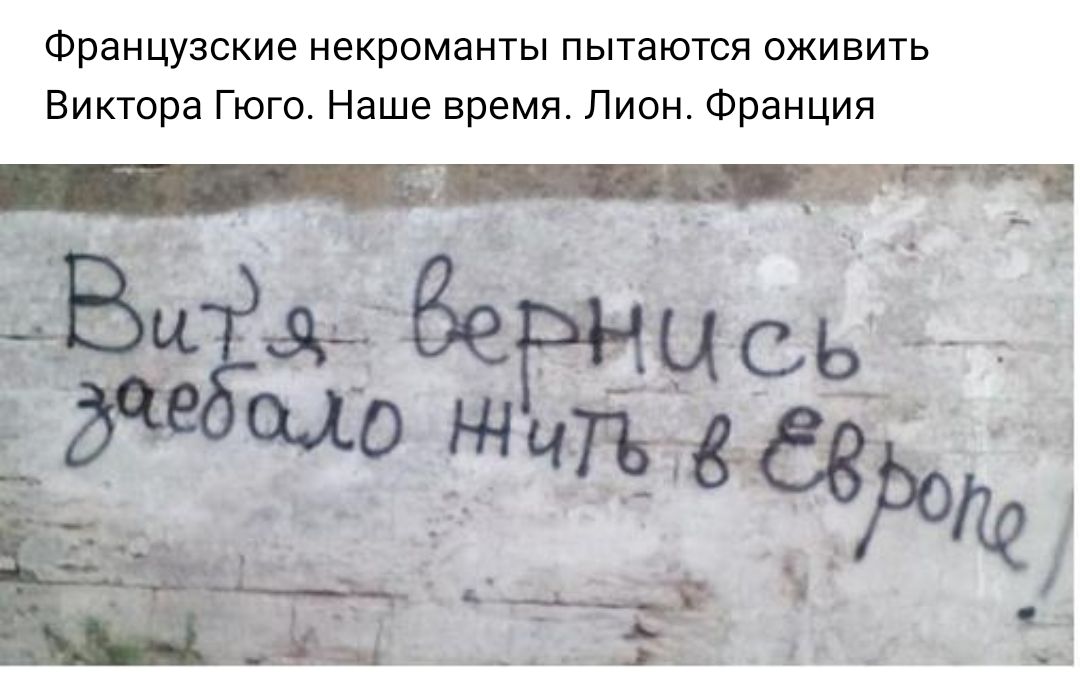 Французские некроманты пытаются оживить
Виктора Гюго. Наше время. Лион. Франция
Витя вернись
заебало жить в Европе!